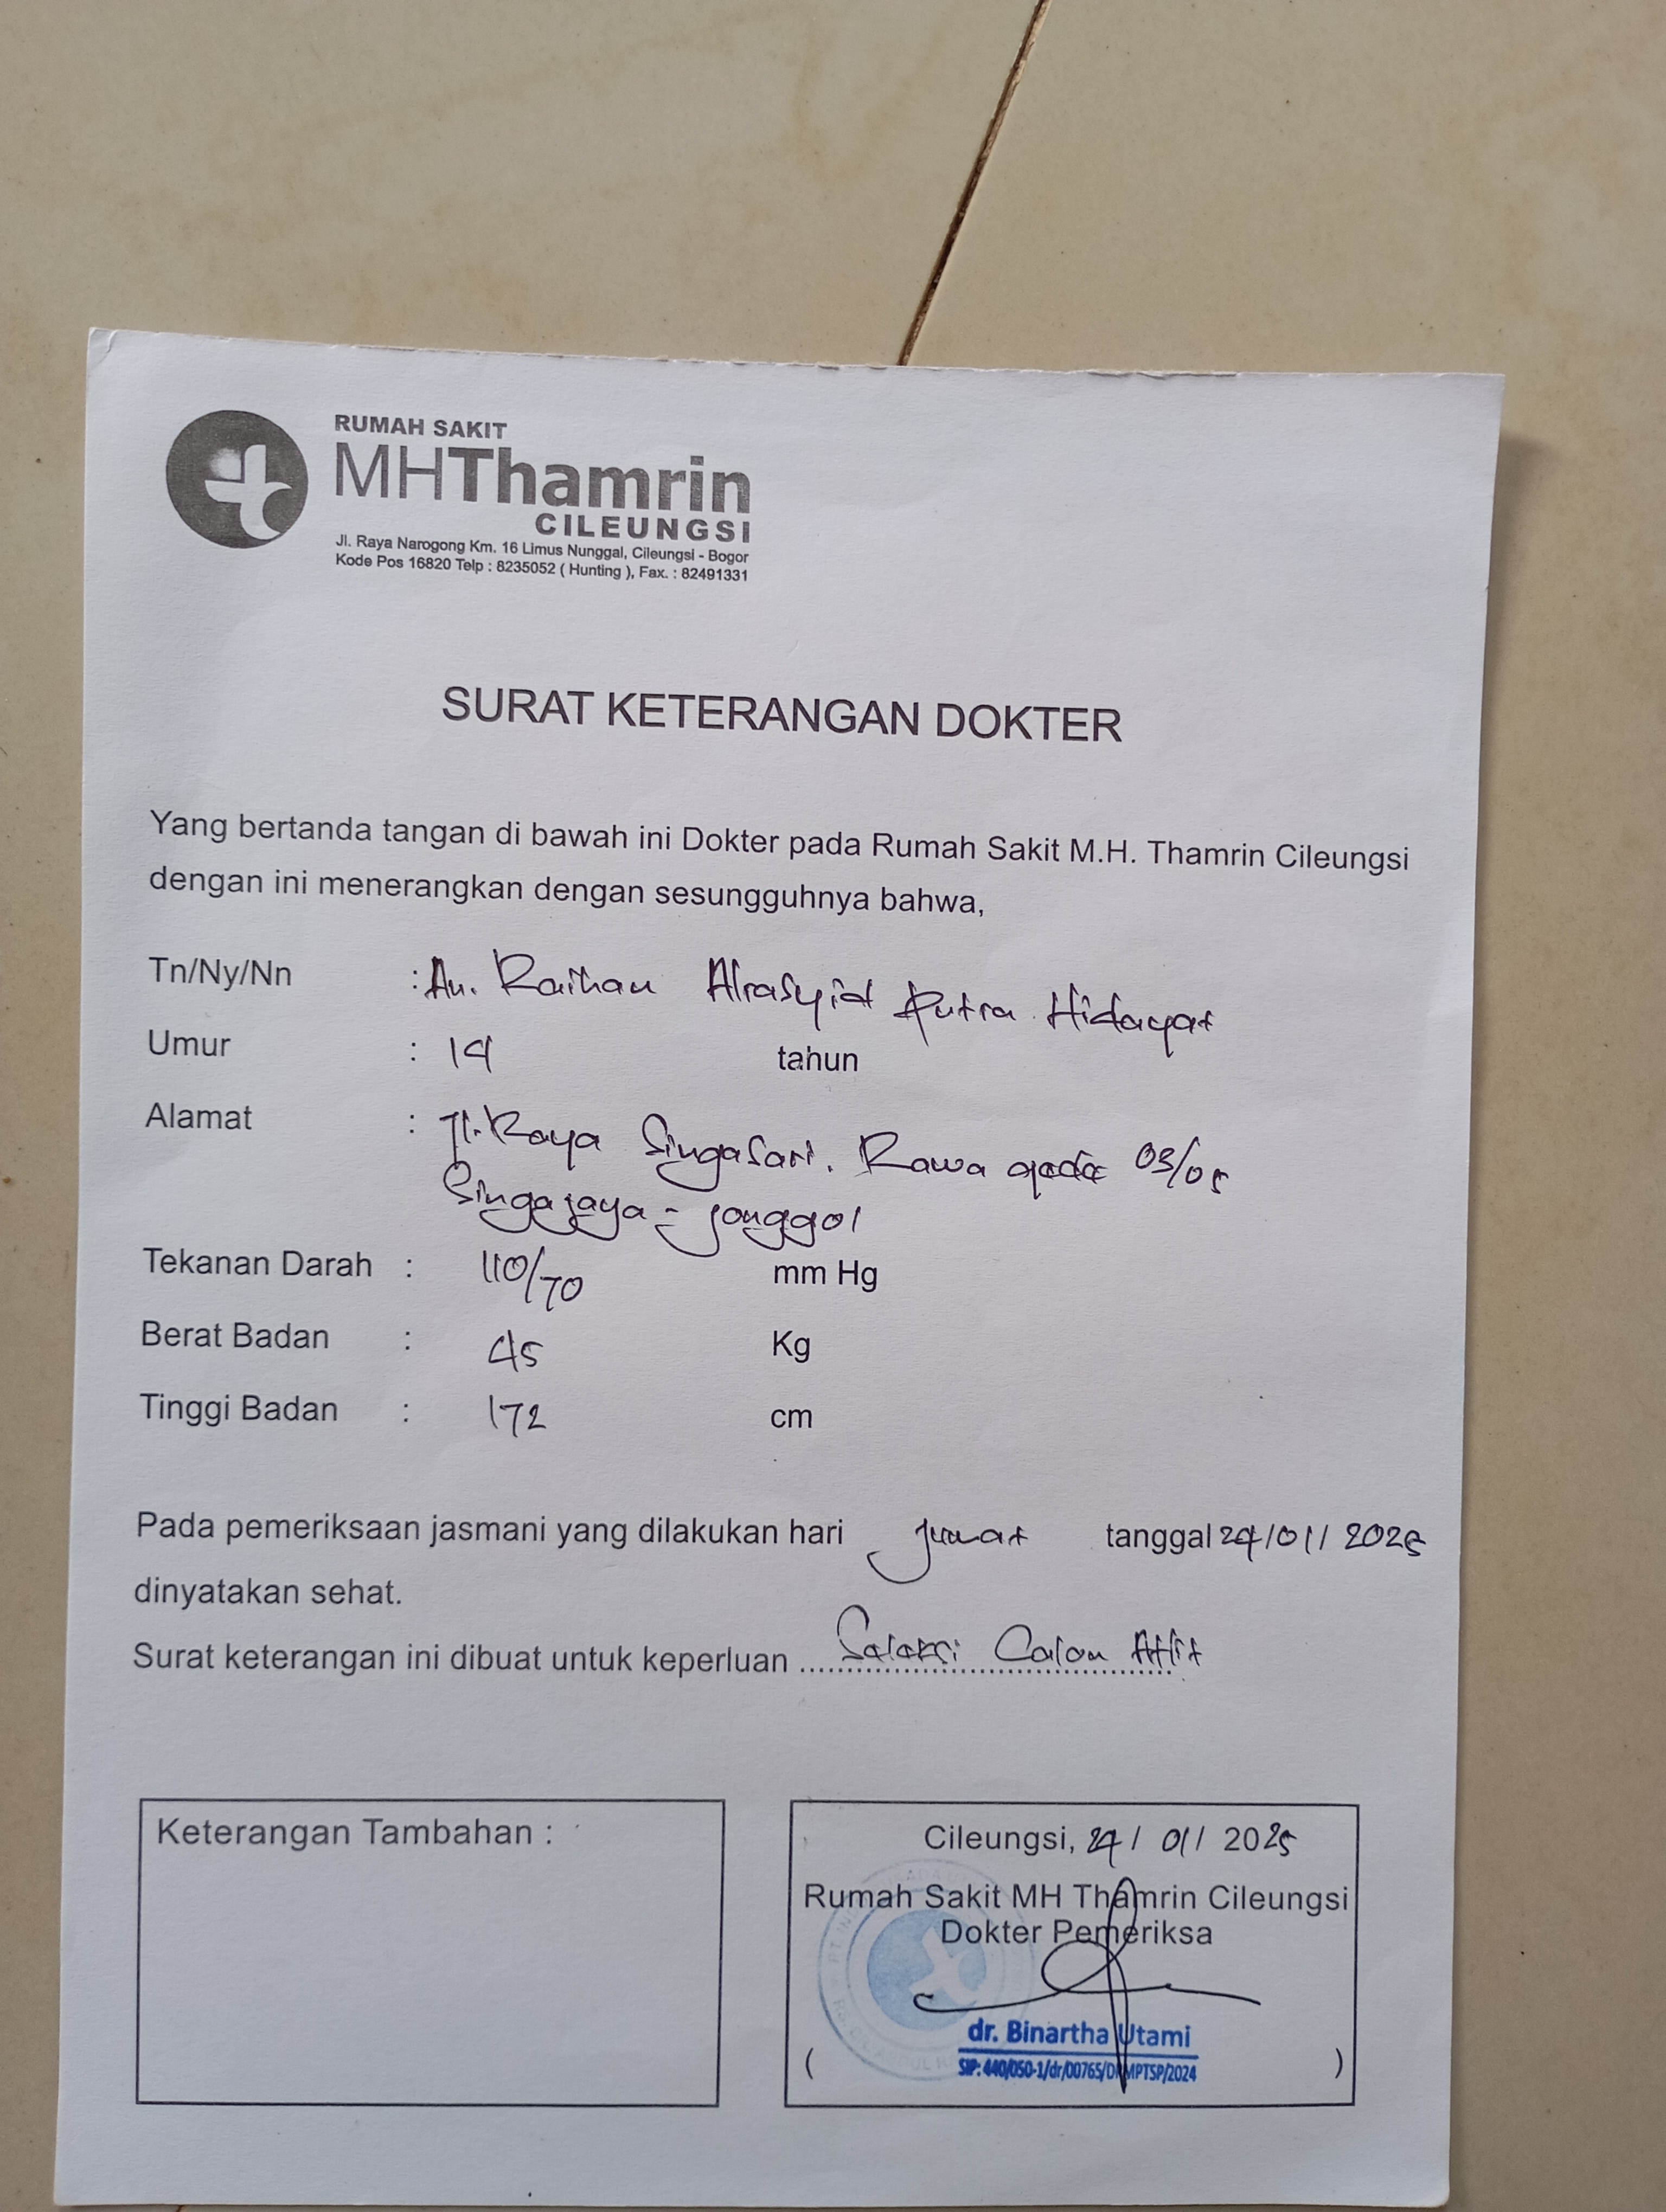 RUMAH SAKIT
MHThamrin
CILEUNGSI
Jl. Raya Narogong Km. 16 Limus Nunggal, Cileungsi - Bogor
Kode Pos 16820 Telp : 8235052 ( Hunting ), Fax. : 82491331
SURAT KETERANGAN DOKTER
Yang bertanda tangan di bawah ini Dokter pada Rumah Sakit M.H. Thamrin Cileungsi
dengan ini menerangkan dengan sesungguhnya bahwa,
Tn/Ny/Nn : An. Raihan Alrasyid Putra Hidayat
Umur : 14 tahun
Alamat : Jl. Raya Singasari. Rawa gede 03/05
Singajaya - Jonggol
Tekanan Darah : 110/70 mm Hg
Berat Badan : 45 Kg
Tinggi Badan : 172 cm
Pada pemeriksaan jasmani yang dilakukan hari Jumat tanggal 24/01/2025
dinyatakan sehat.
Surat keterangan ini dibuat untuk keperluan ...... Seleksi Calon Atlit
Keterangan Tambahan :
Cileungsi, 24/ 01/ 2025
Rumah Sakit MH Thamrin Cileungsi
Dokter Pemeriksa
dr. Binartha Utami
SIP: 440/050-1/dr/00765/DPMPTSP/2024
( )